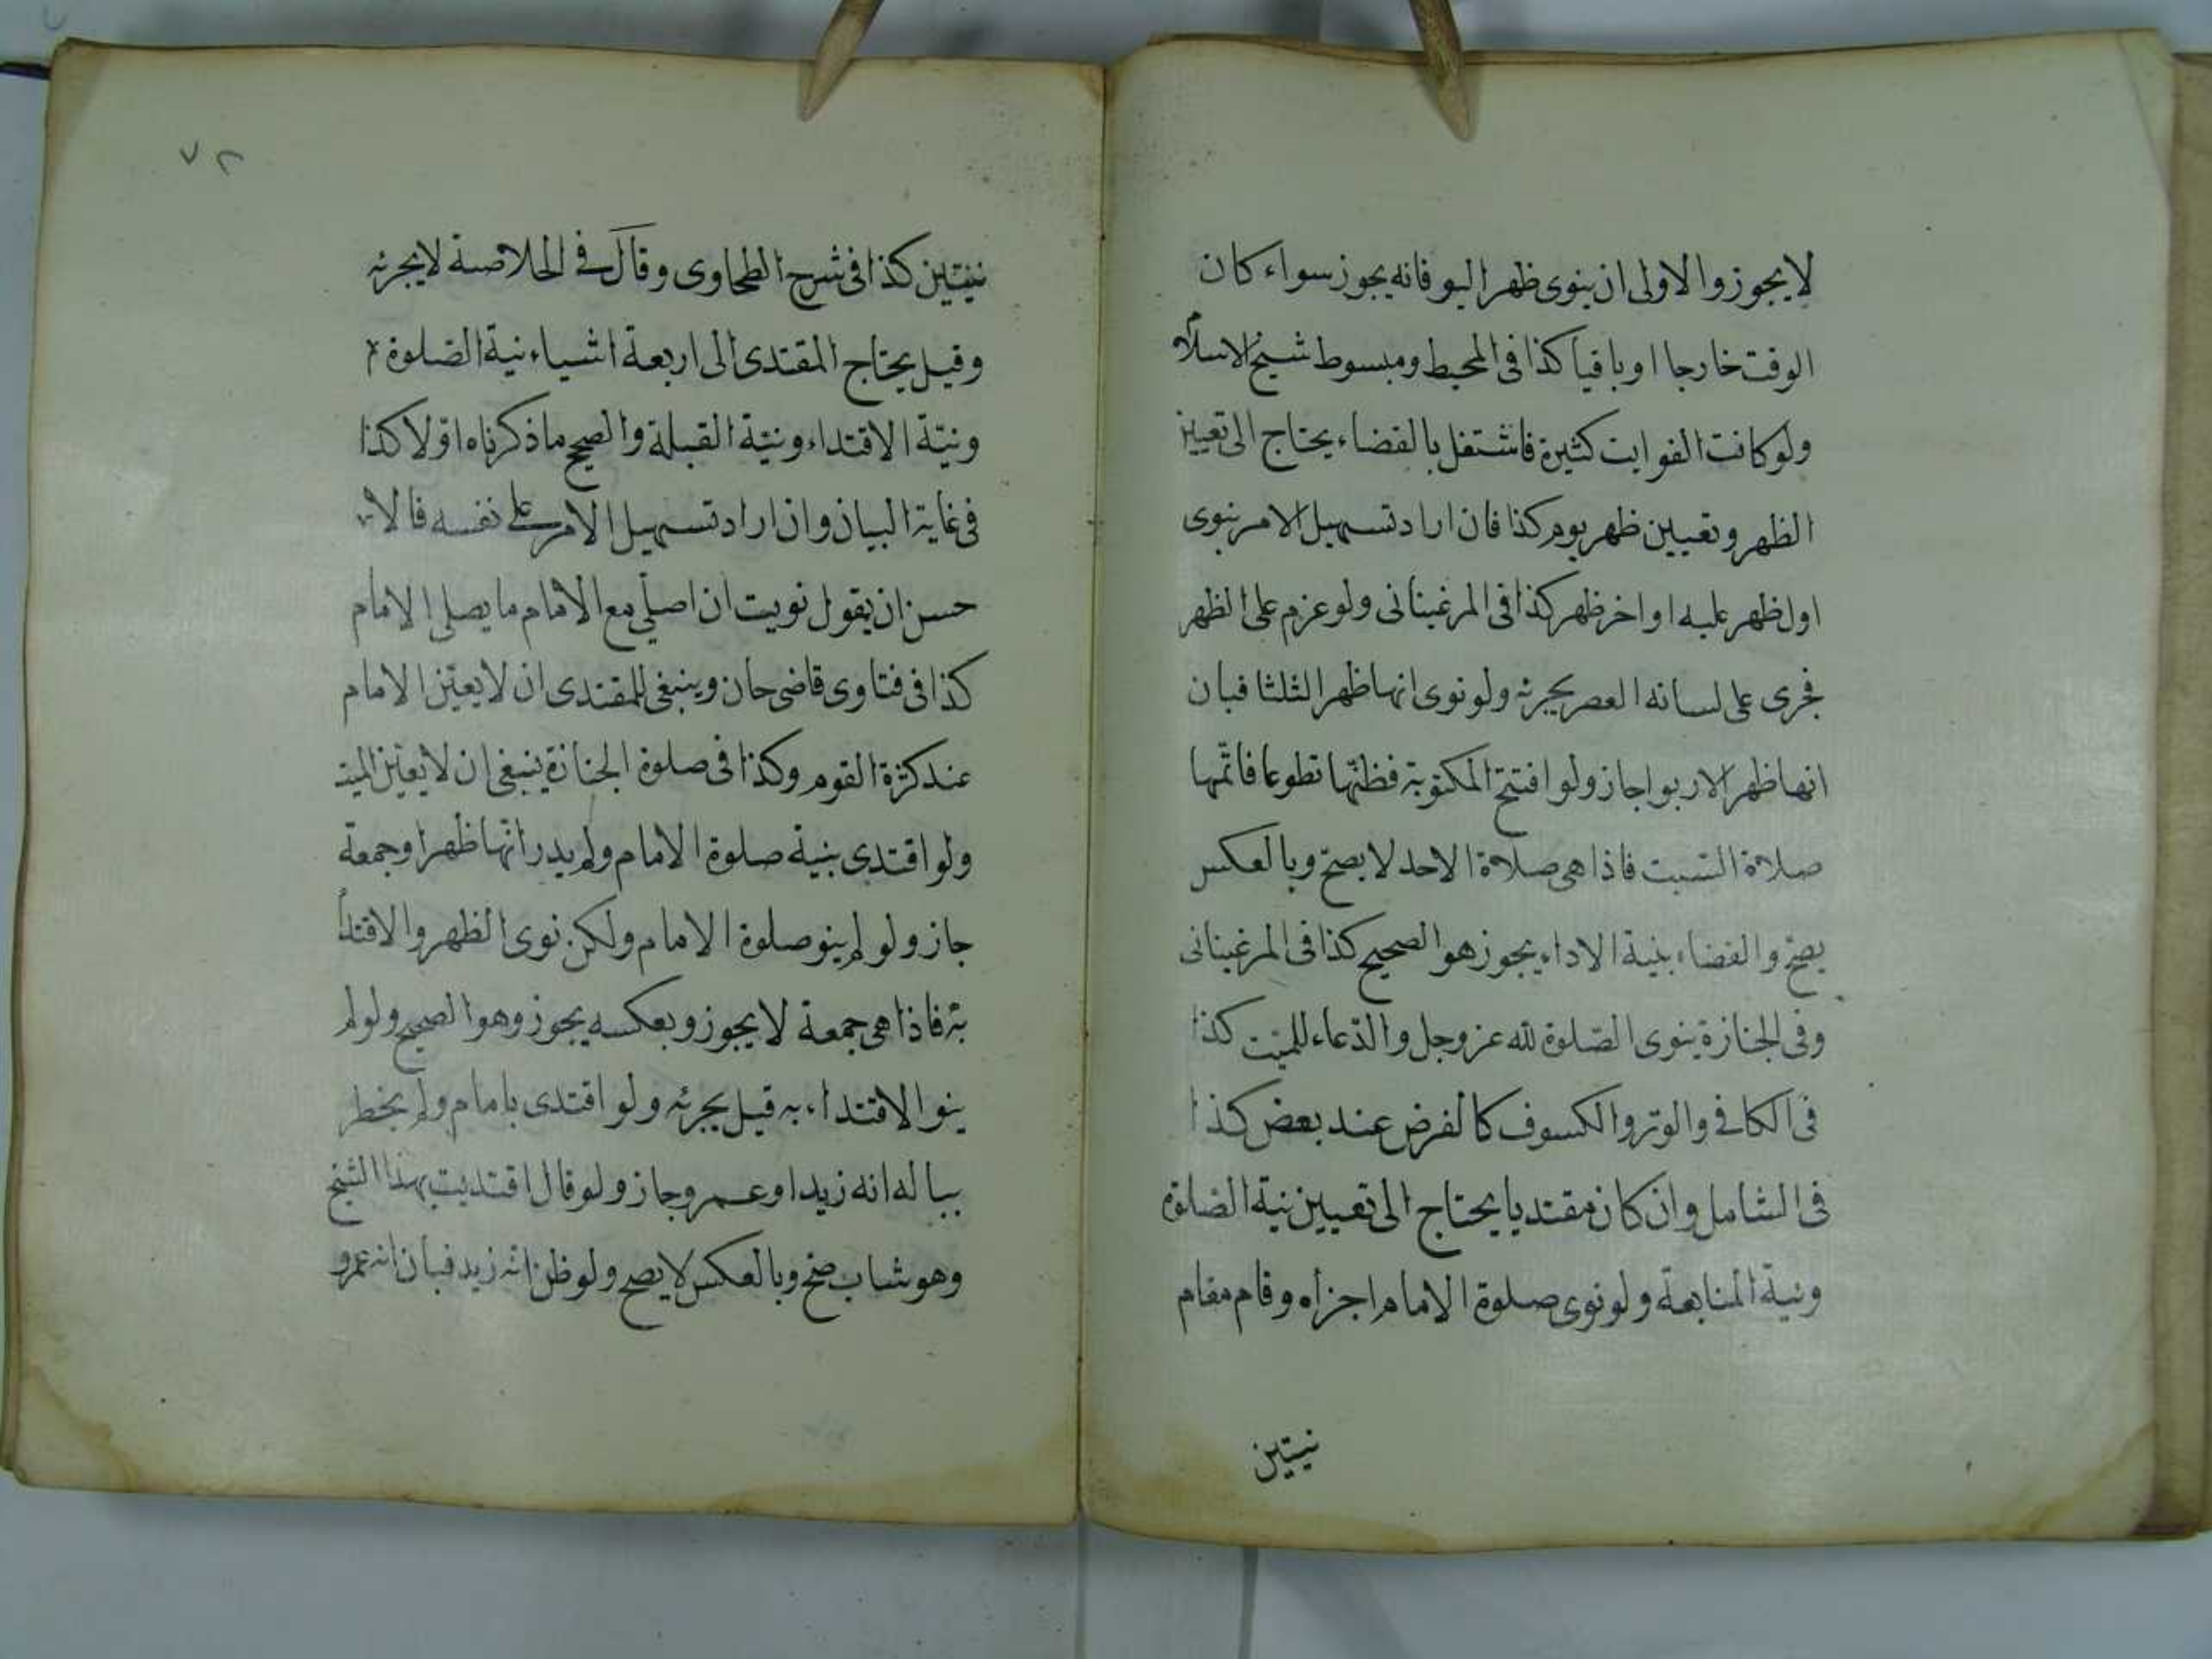 لا يجوز والاولى ان ينوى ظهر اليو فانه يجوز سواء كان
الوقت خارجا او باقيا كذا فى المحيط ومبسوط شيخ الاسلام
ولو كانت الفوايت كثيرة فاشتغل بالقضاء يحتاج الى تعيين
الظهر وتعيين ظهر يوم كذا فان اراد تسهيل الامر ينوى
اول ظهر عليه او اخر ظهر كذا فى المرغينانى ولو عزم على الظهر
فجرى على لسانه العصر يجزئه ولو نوى انها ظهر الثلثا فبان
انها ظهر الاربوا جاز ولو افتتح المكتوبة فظنها تطوعا فاتمها
صلاة السبت فاذا هى صلاة الاحد لا يصح وبالعكس
يصح والقضاء بنية الاداء يجوز هو الصحيح كذا فى المرغينانى
وفى الجنازة ينوى الصلوة لله عز وجل والدعاء للميت كذا
فى الكافى والوتر والكسوف كالفرض عند بعض كذا
فى الشامل وان كان مقتديا يحتاج الى تعيين نية الصلوة
ونية المتابعة ولو نوى صلوة الامام اجزأه وقام مقام
نيتين
٧٢
نيتين كذا فى شرح الطحاوى وقال فى الخلاصة لا يجزئه
وقيل يحتاج المقتدى الى اربعة اشياء نية الصلوة
ونية الاقتداء ونية القبلة والصحيح ما ذكرناه اولا كذا
فى غاية البيان وان اراد تسهيل الامر على نفسه فالا
حسن ان يقول نويت ان اصلى مع الامام ما يصلى الامام
كذا فى فتاوى قاضى خان وينبغى للمقتدى ان لا يعين الامام
عند كثرة القوم وكذا فى صلوة الجنازة ينبغى ان لا يعين الميت
ولو اقتدى بنية صلوة الامام ولم يدر انها ظهر او جمعة
جاز ولو لم ينو صلوة الامام ولكن نوى الظهر والاقتدأ
به فاذا هى جمعة لا يجوز وبعكسه يجوز وهو الصحيح ولو لم
ينو الاقتداء به قيل يجزئه ولو اقتدى بامام ولم يخطر
بباله انه زيد او عمرو جاز ولو قال اقتديت بهذا الشيخ
وهو شاب صح وبالعكس لا يصح ولو ظن انه زيد فبان انه عمرو